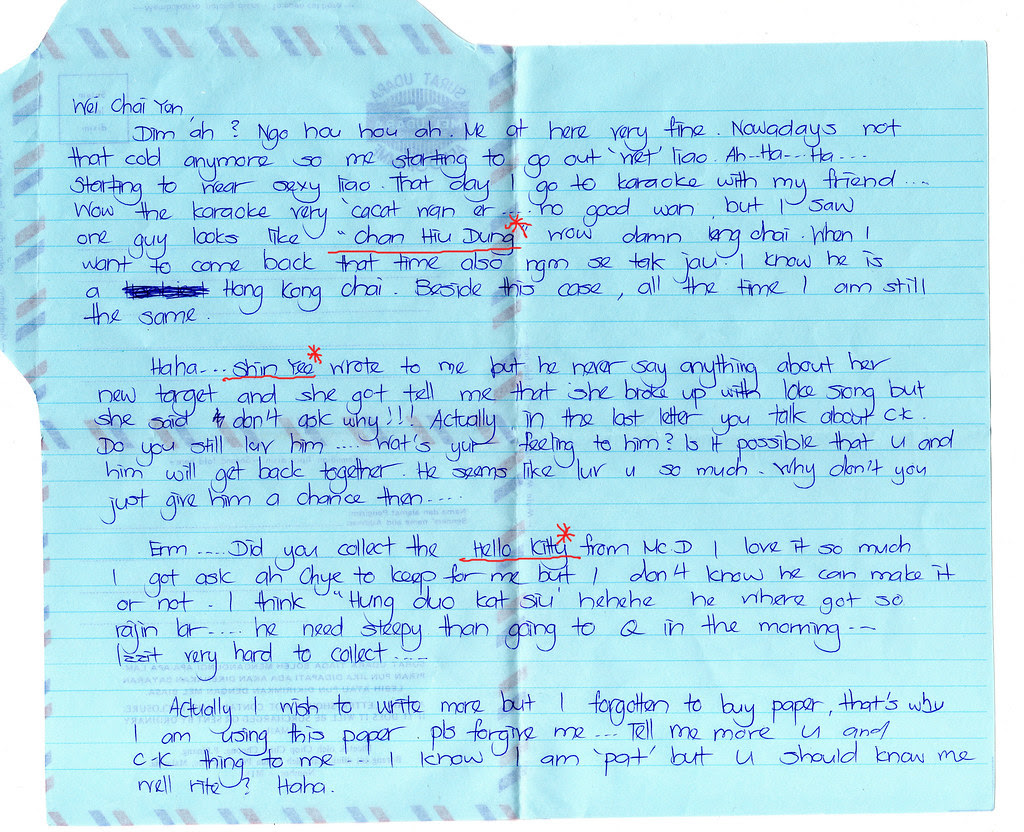 Wei Chai Yan,
Dim ah? Ngo hou hou ah. Me at here very fine. Nowadays not
that cold anymore so me starting to go out 'wet' liao. Ah-Ha--Ha---
Starting to wear sexy liao. That day I go to karaoke with my friend....
Wow the karaoke very 'cacat wan er.... no good wan, but I saw
one guy looks like "Chan Hiu Dung" wow damn leng chai. When I
want to come back that time also ngm se tak jau. I know he is
a Hong Kong chai. Beside this case, all the time I am still
the same.
Haha--- Shin Yee* wrote to me but he never say anything about her
new target and she got tell me that she broke up with loke siong but
she said don't ask why!!! Actually in the last letter you talk about c.k.
Do you still luv him.... Wat's yur feeling to him? Is it possible that u and
him will get back together. He seems like luv u so much. Why don't you
just give him a chance then----
Erm ....Did you collect the Hello Kitty* from Mc D I love it so much
I got ask ah Chye to keep for me but I don't know he can make it
or not. I think "Hung duo kat siu' hehehe he where got so
rajin lar.... he need sleepy than going to Q in the morning--
Izzit very hard to collect ----
Actually I wish to write more but I forgotten to buy paper, that's why
I am using this paper. pls forgive me --- Tell me more u and
c-k thing to me -- I know I am 'pat' but u should know me
well rite? Haha.
SURAT UDARA